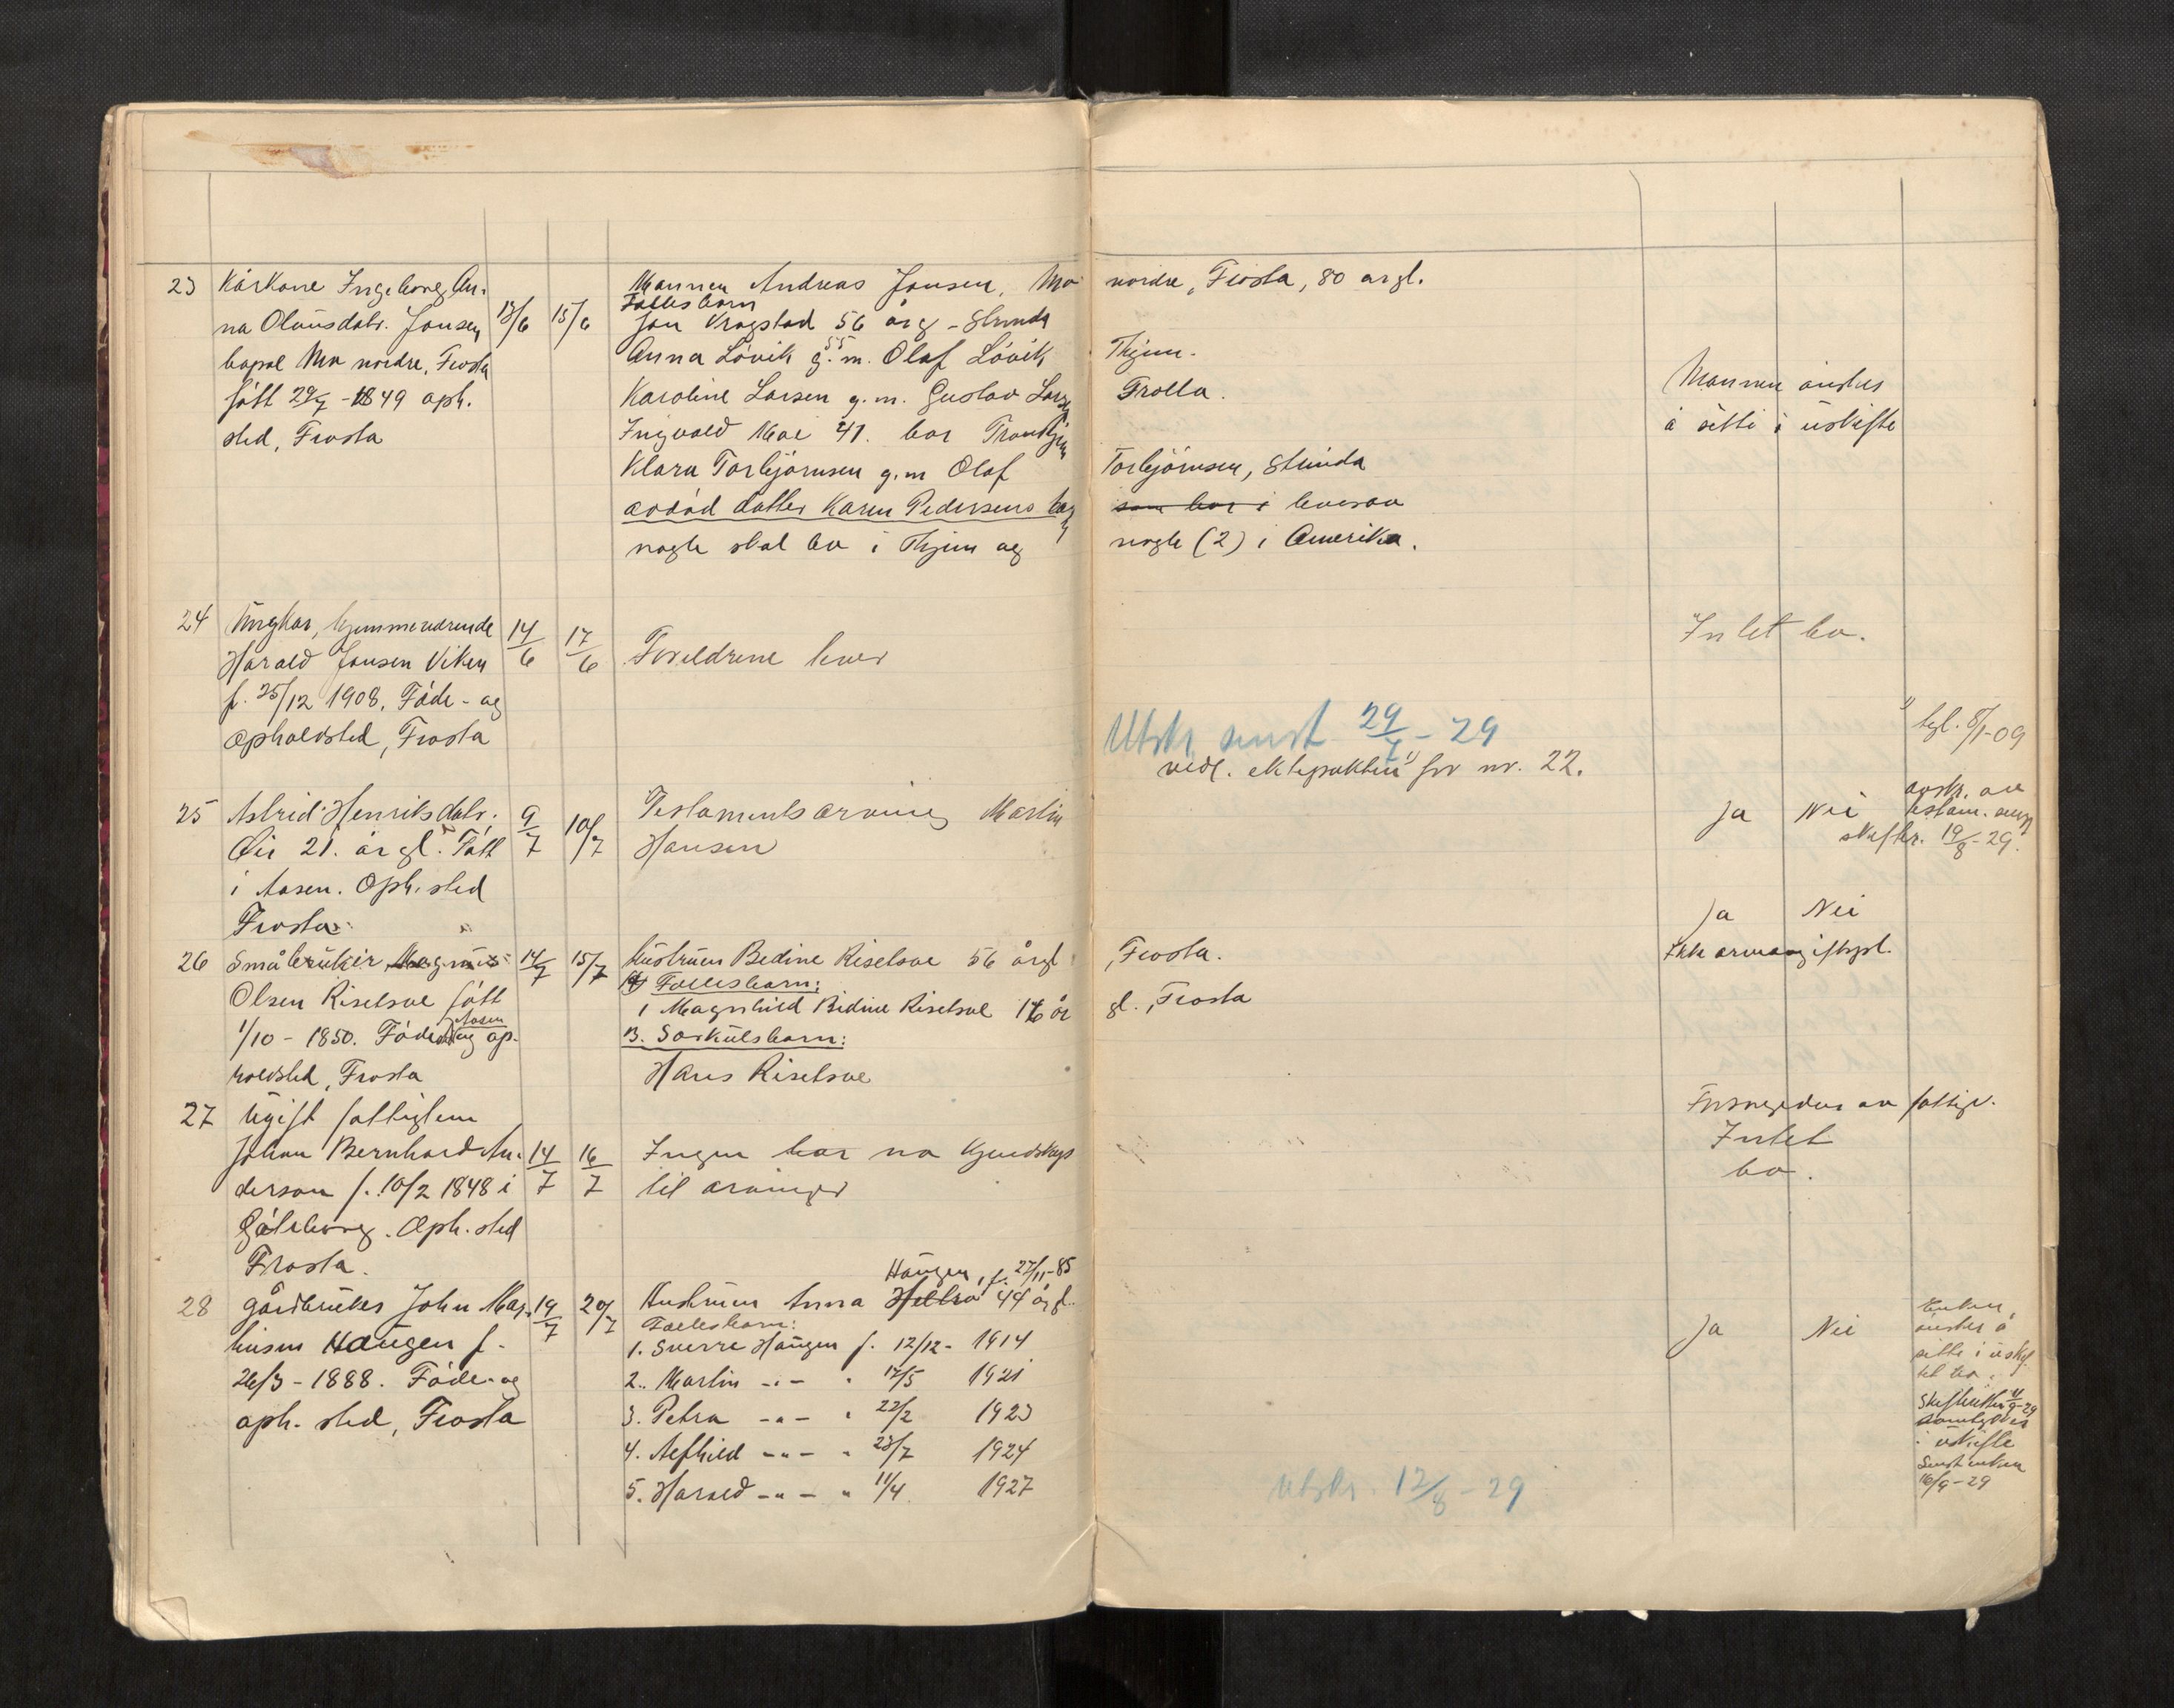 23 Kårkone Ingeborg An-
na Olausdatr. Jonsen 13/6 15/6
bopæl Mo nordre, Frosta
født 29/7 - 1849 oph.
sted, Frosta
Mannen Andreas Jonsen, Mo nordre, Frosta, 80 årgl.
Fællesbarn
Jon Kragstad 56 årg - Strinda
Anna Lövik 55 g.m. Olaf Lövik Thjem.
Karoline Larsen g.m. Gustav Larsen Trolla.
Ingvald Moe 41. bor Trondhjem
Klara Torbjörnsen g.m Olaf Torbjörnsen, Strinda
avdöd datter Karen Pedersens som bor i hvorav
nogle skal bo i Thjem og nogle (2) i Amerika.
Mannen önsker
å sitte i uskifte
24 Ungkar, hjemmeværende 14/6 17/6
Harald Jonsen Viken
f. 25/12 1908. Föde- og
opholdsted, Frosta
Foreldrene lever
Intet bo.
Utskr. sendt 29/7 - 29
vedl. ektepakten for nr. 22.
tgl. 8/1-09
25 Astrid Henriksdatr. 9/7 10/7
Öie 21. år gl. Født
i Aasen. Oph. sted
Frosta
Testamentsarving Martin
Hansen
Ja Nei
avskr. av
testam.
skifter. 19/8-29.
Ja Nei
26 Småbruker Magnus 14/7 15/7
Olsen Risetsve født
1/10 - 1850. Födested Aasen og op-
holdsted, Frosta
Hustruen Bedine Risetsve 56 årgl, Frosta.
A) Fællesbarn:
1 Magnhild Bedine Risetsve 16 år gl., Frosta
B. Særkulsbarn:
Hans Risetsve
Ikke arveavgiftspl.
27 Ugift fattiglem
Johan Bernhard An- 14/7 16/7
derson f. 10/2 1848 i
Göteborg. Oph. sted
Frosta.
Ingen har no kjendskap
til arvinger
Forsørgedes av fattigv.
Intet
bo.
28 Gårdbruker John Mag- 19/7 20/7
nusen Haugen f.
26/3 - 1888. Föde- og
oph. sted, Frosta
Haugen, f. 27/11-85
Hustruen Anna 44 årgl.
Fællesbarn:
1. Sverre Haugen f. 12/12 - 1914
2. Martin -"- " 17/5 1921
3. Petra -"- " 22/2 1923
4. Alfhild -"- " 23/7 1924
5. Harald -"- " 11/4 1927
Utskr. 12/8 - 29
Ja Nei
Enken
önsker å
sitte i uskif
tet bo.
Skifteretten 11/9-29
samtykker
i uskifte
Sendt enken
16/9-29